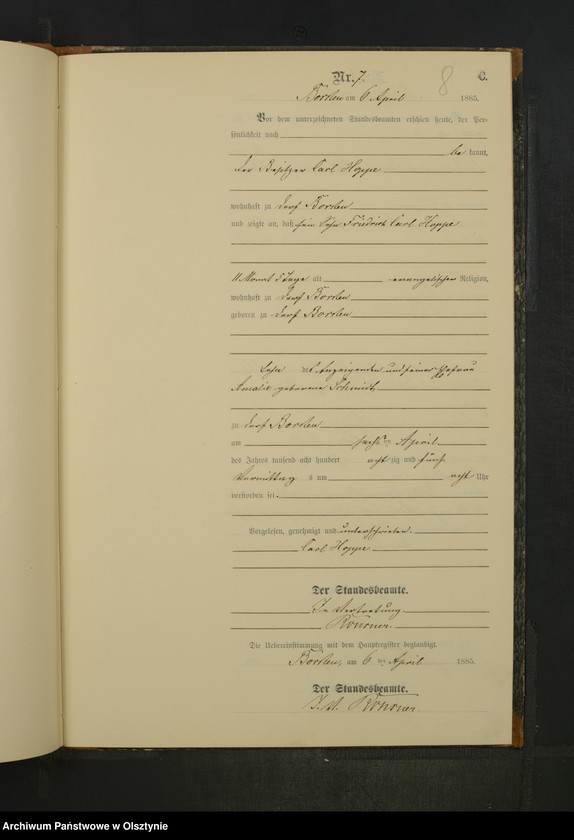 Nr. 7. 8 C.
Borken am 6 April 1885.
Vor dem unterzeichneten Standesbeamten erschien heute, der Per-
sönlichkeit nach
be kannt,
der Besitzer Carl Hoppe
wohnhaft zu Dorf Borken
und zeigte an, daß sein Sohn Friedrich Carl Hoppe
11 Monat 5 Tage alt evangelischer Religion,
wohnhaft zu Dorf Borken
geboren zu Dorf Borken
Sohn des Anzeigenden und seiner Ehefrau
Amalie geborene Schmidt
zu Dorf Borken
am sechsten April
des Jahres tausend acht hundert acht zig und fünf
Vormittag s um acht Uhr
verstorben sei.
Vorgelesen, genehmigt und unterschrieben.
Carl Hoppe
Der Standesbeamte.
In Vertretung
Die Uebereinstimmung mit dem Hauptregister beglaubigt.
Borken, am 6 ten April 1885.
Der Standesbeamte.
J. V.
Archiwum Państwowe w Olsztynie